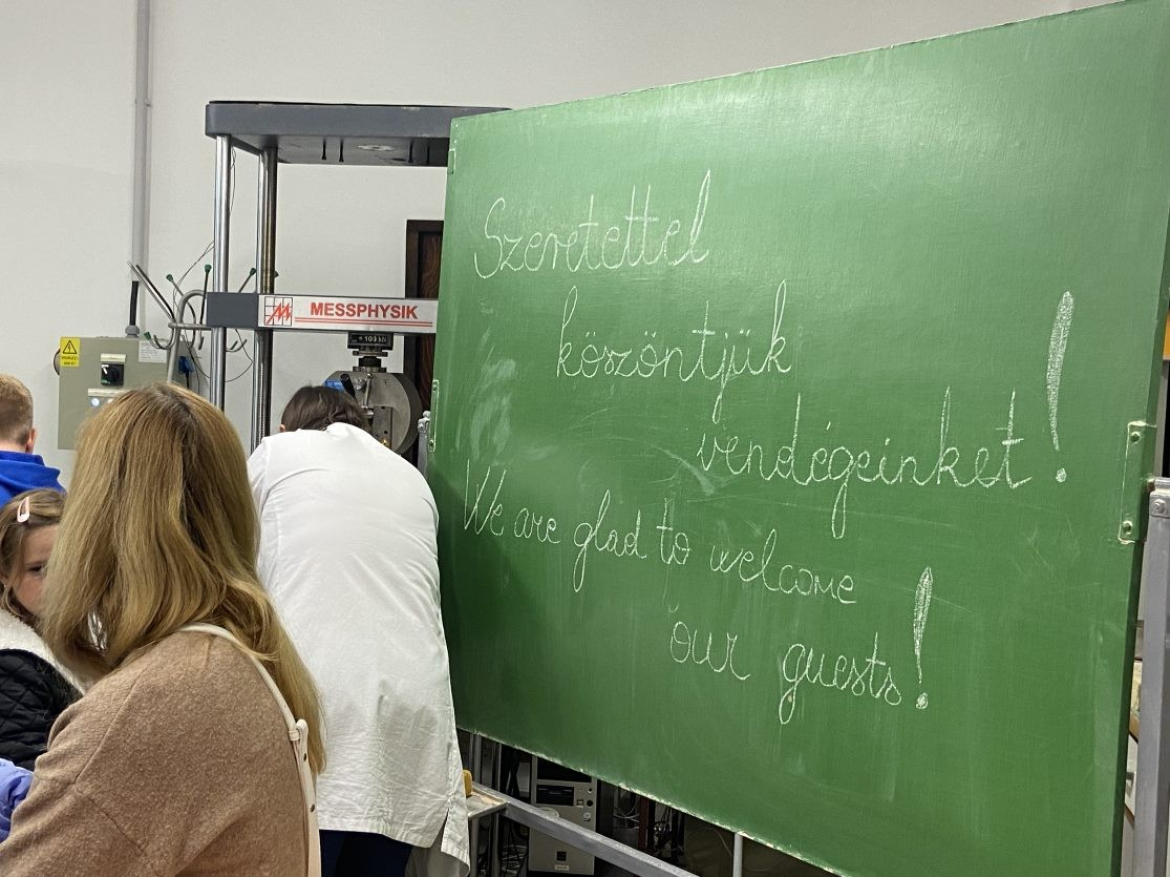 MESSPHYSIK
Szeretettel
köszöntjük
vendégeinket!
We are glad to welcome
our guests!